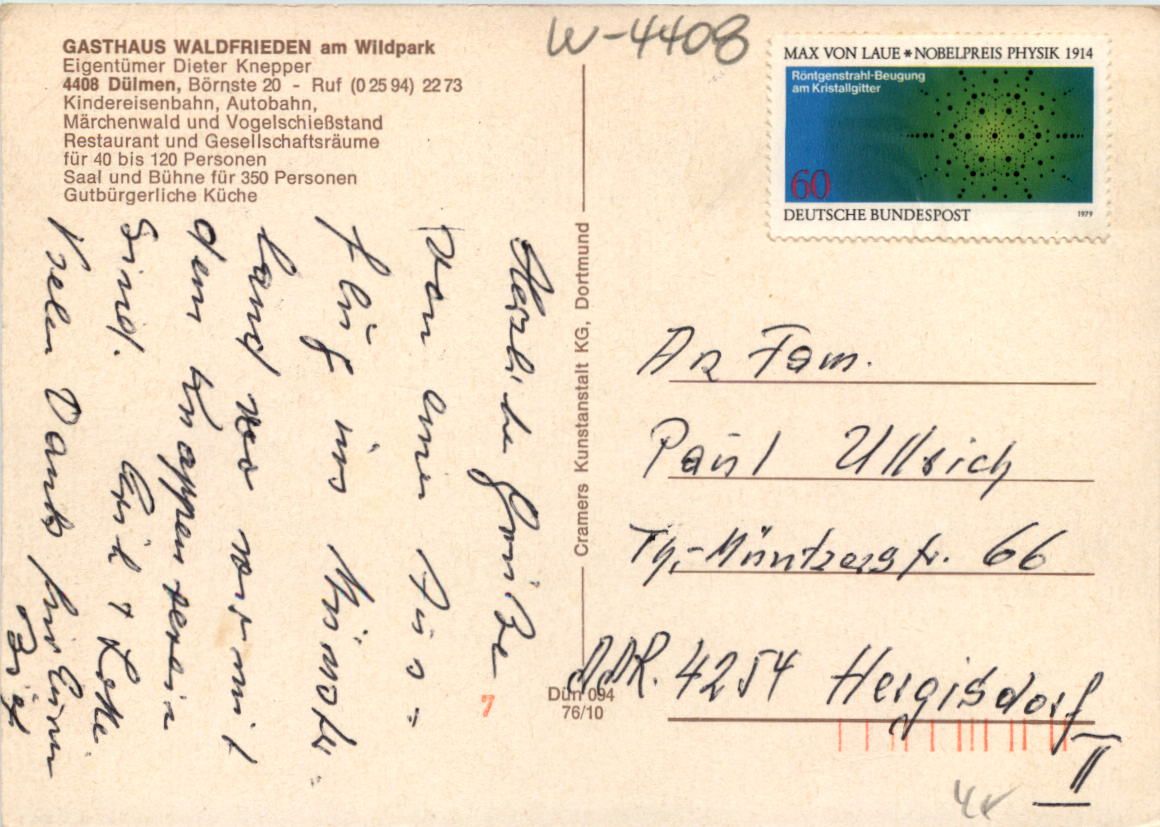 GASTHAUS WALDFRIEDEN am Wildpark
Eigentümer Dieter Knepper
4408 Dülmen, Börnste 20 - Ruf (0 25 94) 22 73
Kindereisenbahn, Autobahn,
Märchenwald und Vogelschießstand
Restaurant und Gesellschaftsräume
für 40 bis 120 Personen
Saal und Bühne für 350 Personen
Gutbürgerliche Küche
W-4408
MAX VON LAUE * NOBELPREIS PHYSIK 1914
Röntgenstrahl-Beugung
am Kristallgitter
60
DEUTSCHE BUNDESPOST
1979
Herzliche Grüße
von einem Aus-
flug ins Münster-
land wo wir mit
dem Knappenverein
sind.
Vielen Dank für Euren
Brief
Cramers Kunstanstalt KG, Dortmund
Dün 094
76/10
7
An Fam.
Paul Ullrich
Th.-Müntzerstr. 66
DDR. 4254 Hergisdorf
II